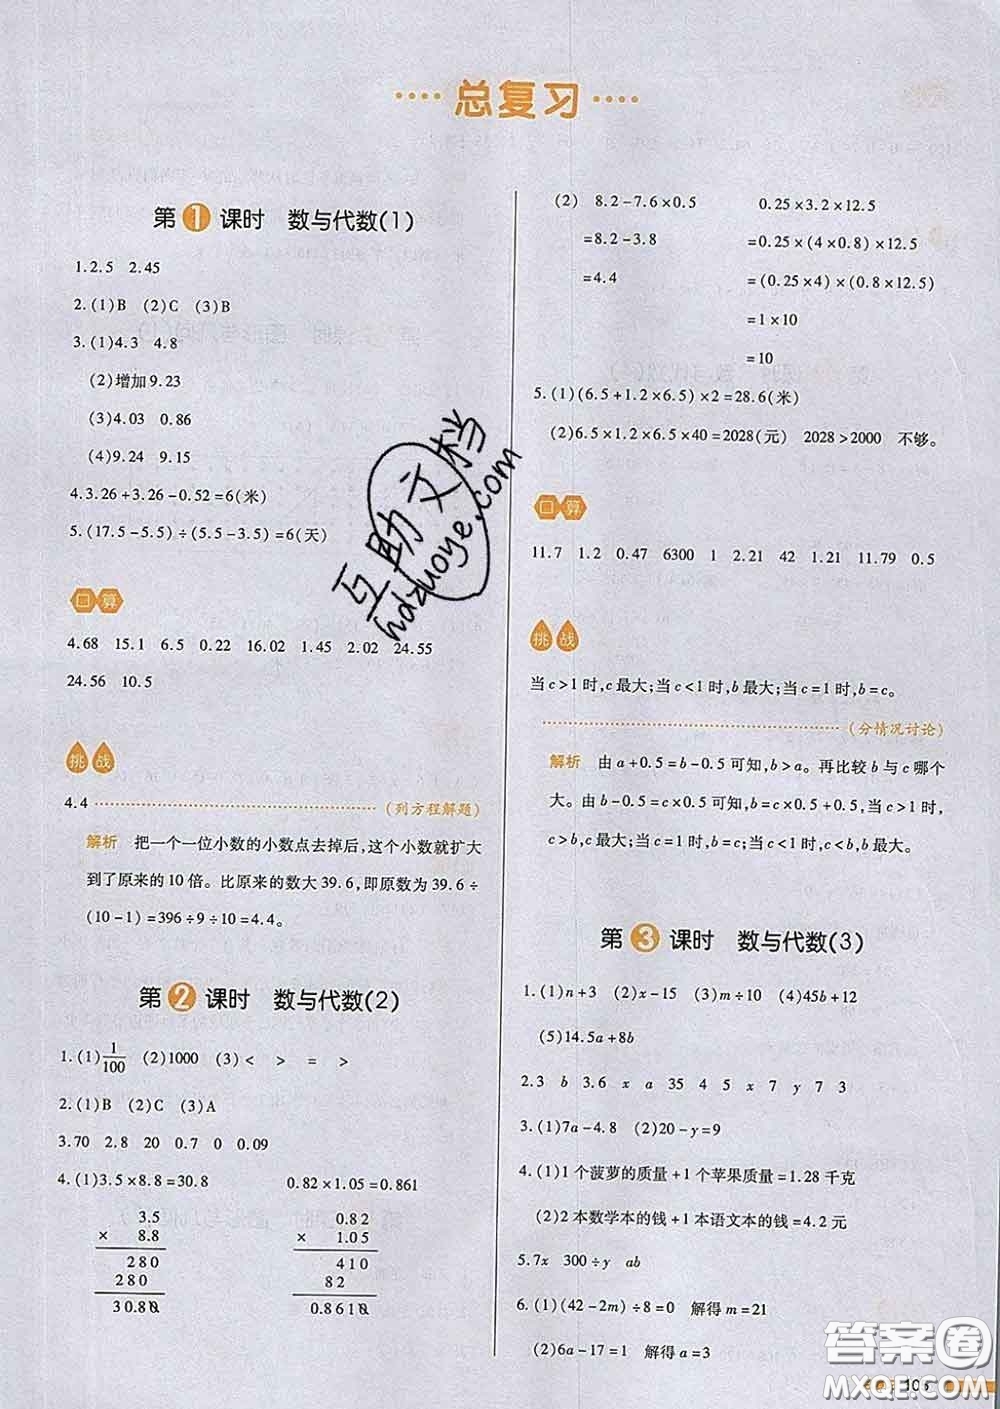 总复习
第1课时 数与代数(1)
1.2.5 2.45
2.(1)B (2)C (3)B
3.(1)4.3 4.8
(2)增加9.23
(3)4.03 0.86
(4)9.24 9.15
4.3.26+3.26-0.52=6(米)
5.(17.5-5.5)÷(5.5-3.5)=6(天)
口算
4.68 15.1 6.5 0.22 16.02 1.45 2.02 24.55
24.56 10.5
挑战
4.4 (列方程解题)
解析 把一个一位小数的小数点去掉后,这个小数就扩大
到了原来的10倍。比原来的数大39.6,即原数为39.6÷
(10-1)=396÷9÷10=4.4。
第2课时 数与代数(2)
1.(1)1/100 (2)1000 (3)< > = >
2.(1)B (2)C (3)A
3.70 2.8 20 0.7 0 0.09
4.(1)3.5×8.8=30.8 0.82×1.05=0.861
3.5 0.82
× 8.8 × 1.05
280 410
280 82
30.80 0.8610
(2) 8.2-7.6×0.5 0.25×3.2×12.5
=8.2-3.8 =0.25×(4×0.8)×12.5
=4.4 =(0.25×4)×(0.8×12.5)
=1×10
=10
5.(1)(6.5+1.2×6.5)×2=28.6(米)
(2)6.5×1.2×6.5×40=2028(元) 2028>2000 不够。
口算
11.7 1.2 0.47 6300 1 2.21 42 1.21 11.79 0.5
挑战
当c>1时,c最大;当c<1时,b最大;当c=1时,b=c。
(分情况讨论)
解析 由a+0.5=b-0.5可知,b>a。再比较b与c哪个
大。由b-0.5=c×0.5可知,b=c×0.5+0.5,当c>1时,
c>b,c最大;当c=1时,b=c;当c<1时,c<b,b最大。
第3课时 数与代数(3)
1.(1)n+3 (2)x-15 (3)m÷10 (4)45b+12
(5)14.5a+8b
2.3 b 3.6 x a 35 4 5 x 7 y 7 3
3.(1)7a-4.8 (2)20-y=9
4.(1)1个菠萝的质量+1个苹果质量=1.28千克
(2)2本数学本的钱+1本语文本的钱=4.2元
5.7x 300÷y ab
6.(1)(42-2m)÷8=0 解得m=21
(2)6a-17=1 解得a=3
互助文档
hdzuoye.com
答案圈
MXQE.COM